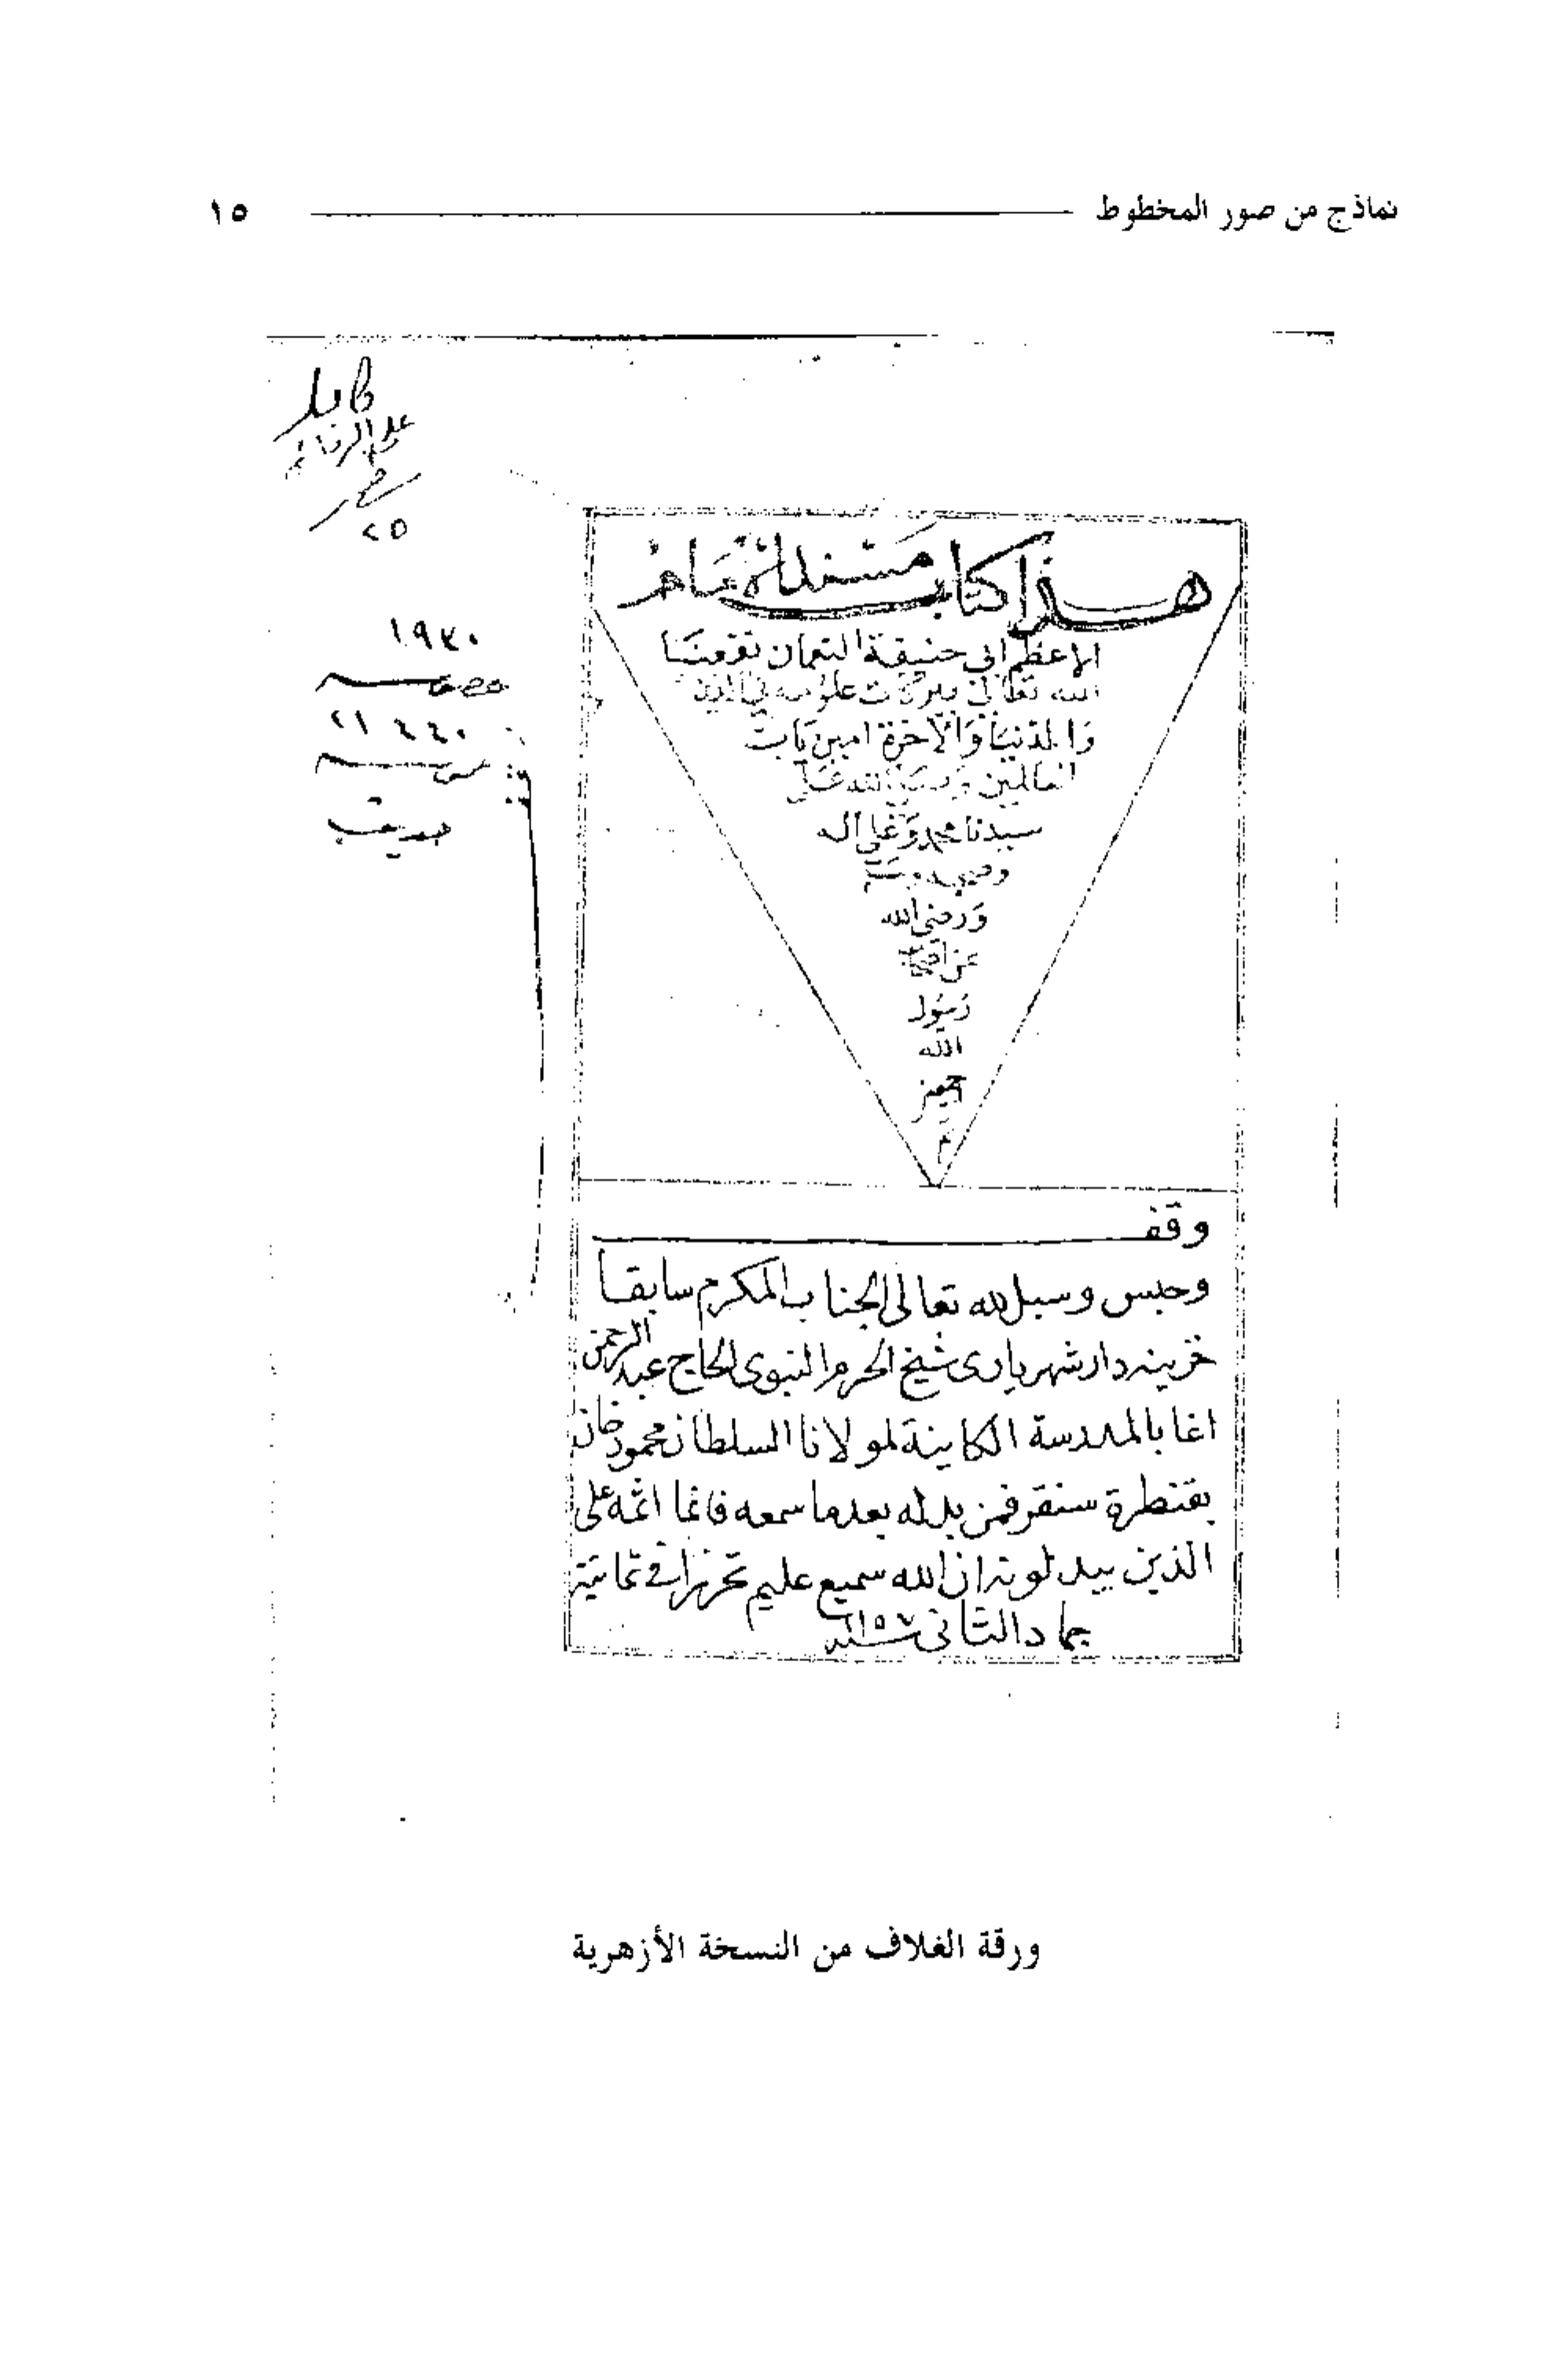 نماذج من صور المخطوط ١٥
هذا كتاب مسند الامام
الاعظم ابى حنيفة النعمان نفعنا
الله تعالى ببركات علومه في الدين
والدنيا والاخرة امين يا رب
العالمين وصلى الله على
سيدنا محمد وعلى اله
وصحبه وسلم
ورضى الله
عن اصحاب
رسول
الله
اجمعين
م
وقف
وحبس وسبل لله تعالى الجناب المكرم سابقا
خزينه دار شهريارى شيخ الحرم النبوى الحاج عبد الرحمن
اغا بالمدرسة الكاينة لمولانا السلطان محمود خان
بقنطرة سنقر فمن بدله بعدما سمعه فانما اثمه على
الذين يبدلونه ان الله سميع عليم تحريرا في ثمانية
جماد الثانى سنة ١١٥٧
١٩٣٠
خصوصية
عمومية
حديث
٢٥
ورقة الغلاف من النسخة الأزهرية